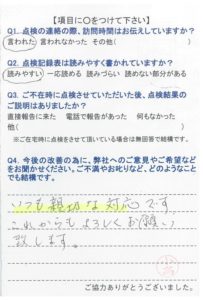 【項目に○をつけて下さい】
Q1. 点検の連絡の際、訪問時間はお伝えしていますか?
言われた 言われなかった その他( )
Q2. 点検記録表は読みやすく書かれていますか?
読みやすい 一応読める 読みづらい 読めない部分がある
Q3. ご不在時に点検させていただいた後、点検結果の
ご説明はありましたか?
直接報告に来た 電話で報告があった 何もなかった
他( )
※ご在宅時に点検をさせて頂いている場合は無回答で結構です。
Q4. 今後の改善の為に、弊社へのご意見やご希望など
をお聞かせください。ご不満やお叱りなど、どのようなこと
でも結構です。
いつも親切な対応です
これからもよろしくお願い
致します。
ご協力ありがとうございました。